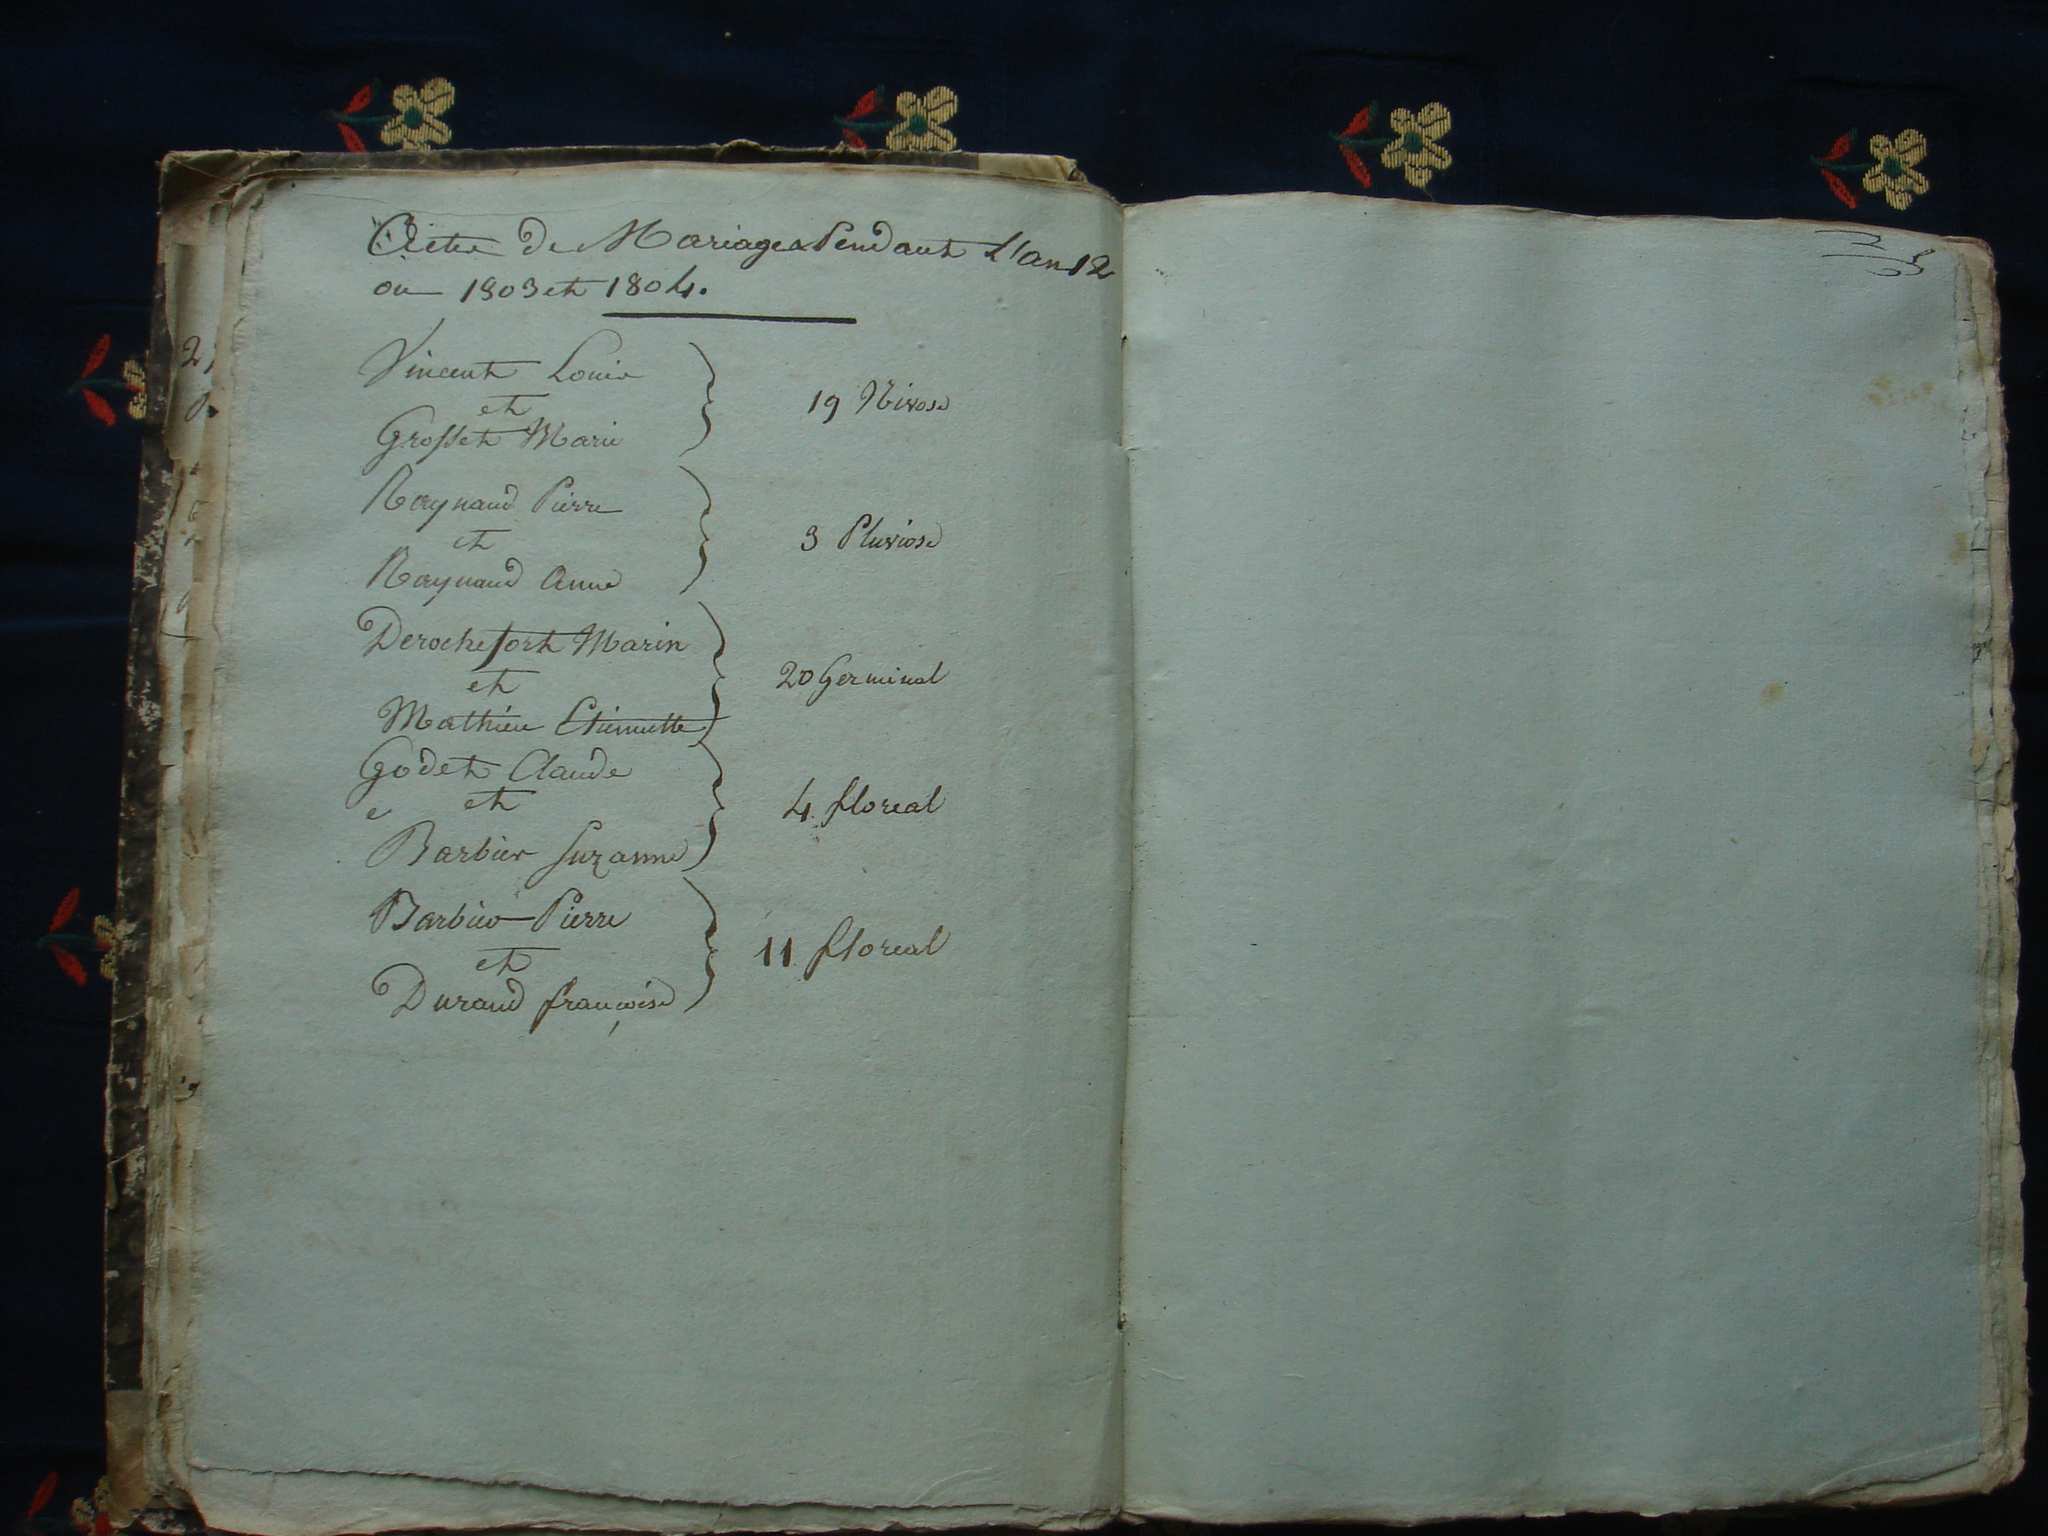 Actes de Mariages Pendant L'an 12
ou 1803 et 1804.
Vincent Louis
et
Grosset Marie
19 Nivose
Raynaud Pierre
et
Raynaud Anne
3 Pluviose
Derochefort Marin
et
Mathieu Etiennette
20 Germinal
Godet Claude
et
Barbier Suzanne
4 floreal
Barbier Pierre
et
Durand françoise
11 floreal